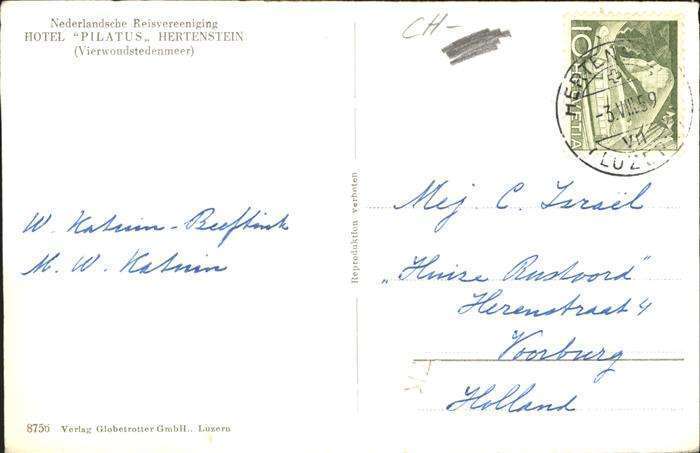 Nederlandsche Reisvereeniging
HOTEL "PILATUS„ HERTENSTEIN
(Vierwoudstedenmeer)
CH-
10
HELVETIA
HERTEN
-3.VIII.59
LUZE
W. Katuin-Beeftink
M. W. Katuin
Reproduktion verboten
Mej. C. Israël
„Huize Rustoord"
Herenstraat 4
Voorburg
Holland
8756 Verlag Globetrotter GmbH., Luzern